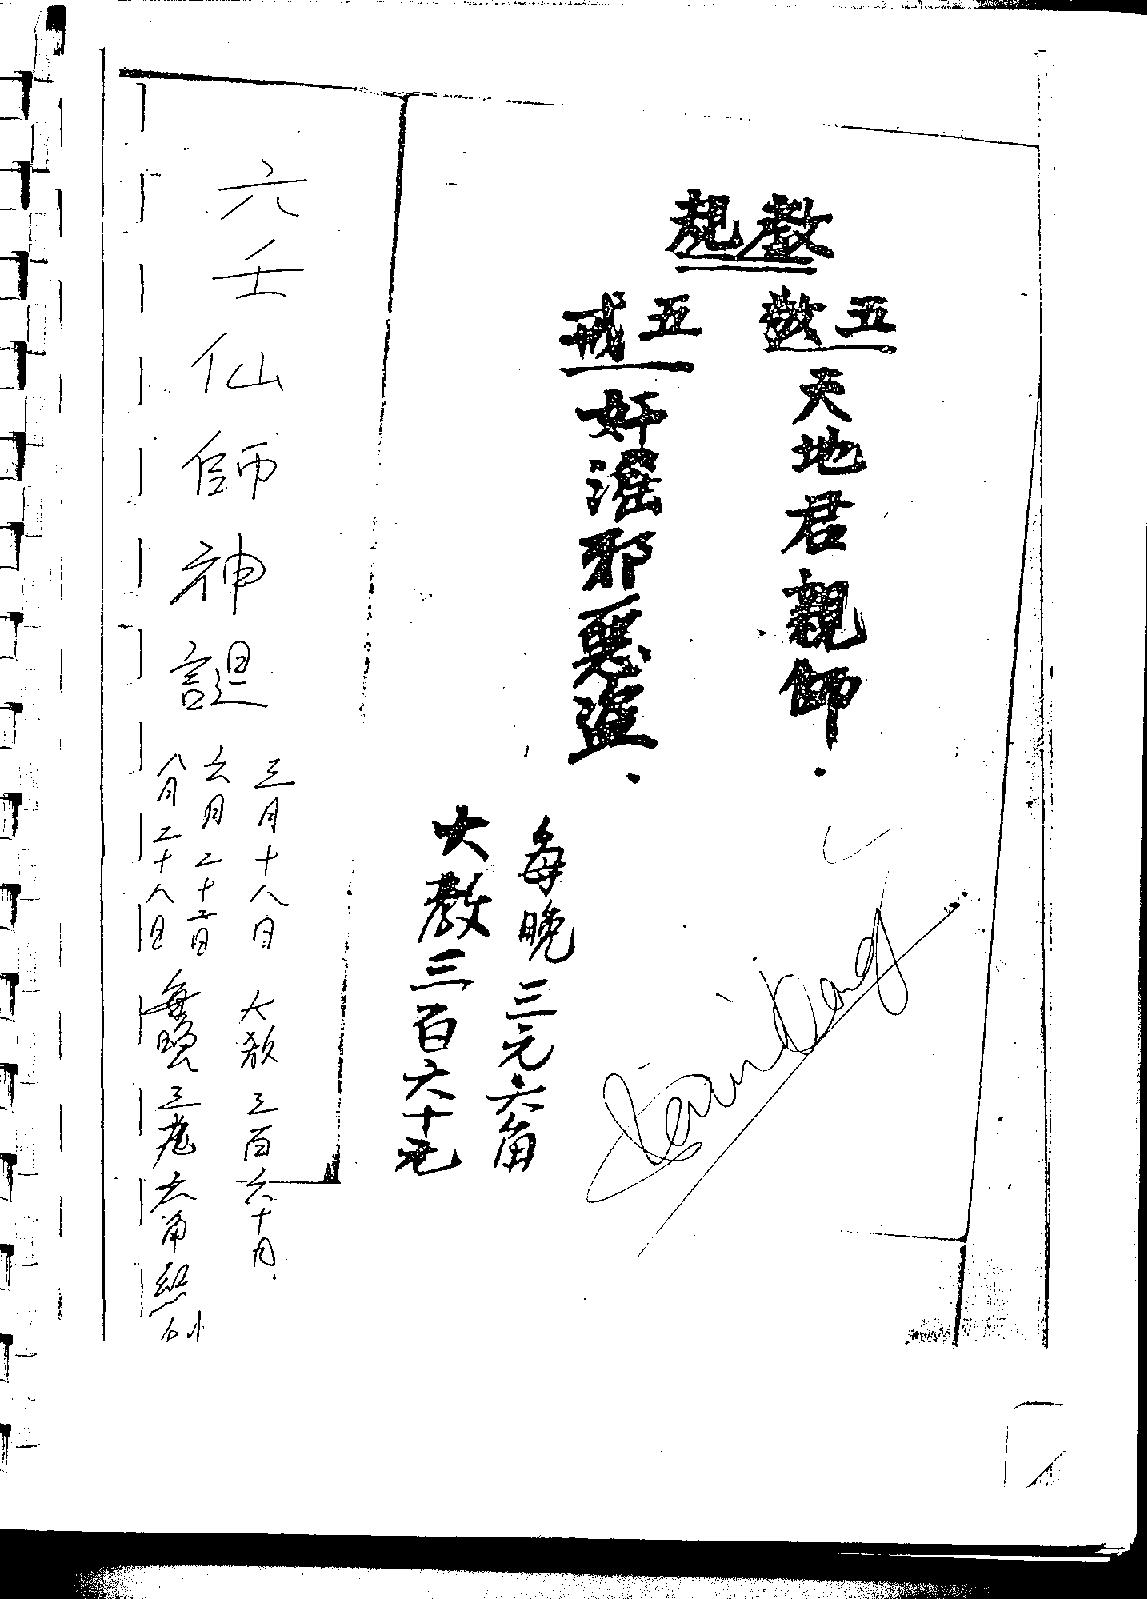 教規
五敬
天地君親師.
五戒
奸滛邪惡盗.
每晚三元六角
大教三百六十元
六壬仙師神誕
三月十八日 大教 三百六十元
六月二十二日
八月二十八日 每晚 三元六角